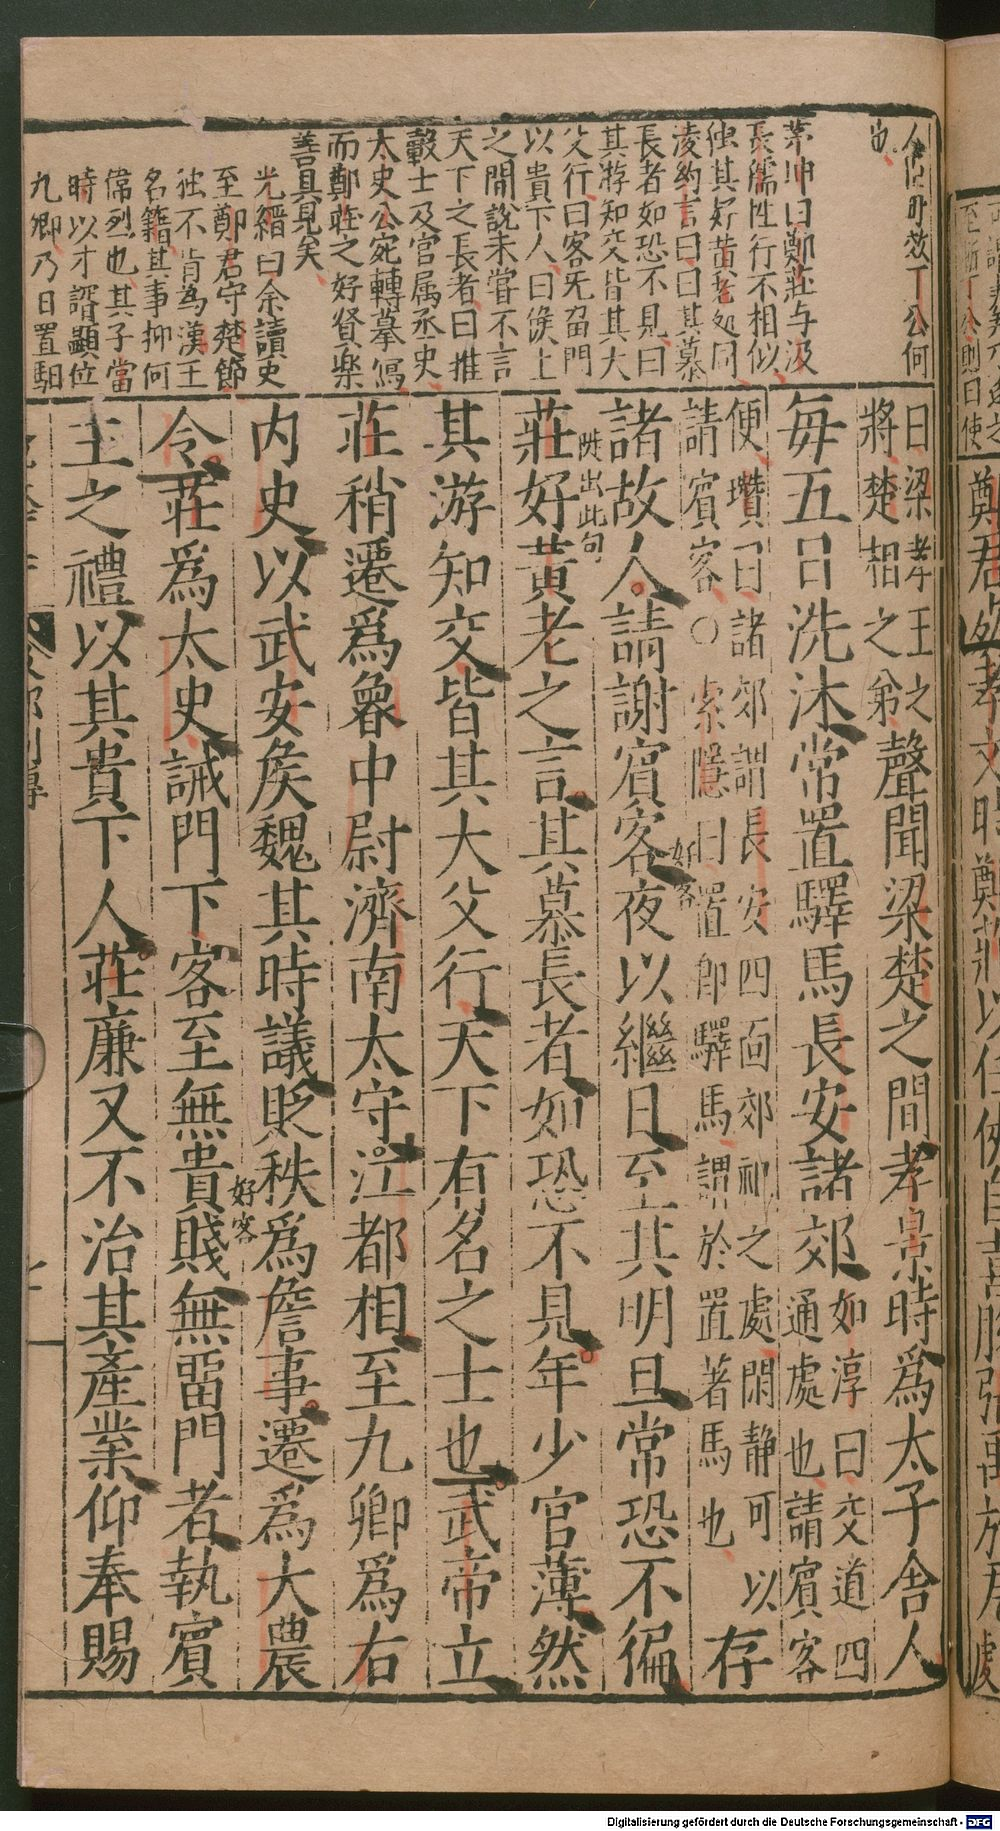 茅坤曰鄭莊与汲
長孺性行不相似
独其好黃老処同
凌約言曰曰其慕
長者如恐不見曰
其游知交皆其大
父行曰客旡畱門
以貴下人曰候上
之間說未嘗不言
天下之長者曰推
轂士及官属丞史
太史公宛轉摹寫
而鄭莊之好賢樂
善具見矣
光縉曰余讀史
至鄭君守楚節
独不肯為漢王
名籍其事抑何
偉烈也其子當
時以才諝顯位
九卿乃日置馹
曰梁孝王之
將楚相之弟
聲聞梁楚之間孝景時爲太子舍人
每五日洗沐常置驛馬長安諸郊
如淳曰交道四
通處也請賓客
便瓚曰諸郊謂長安四面郊祀之處閑静可以
請賓客○索隱曰置即驛馬謂於置著馬也
存
諸故人請謝賓客夜以繼日至其明旦常恐不徧
好客
莊好黃老之言其慕長者如恐不見年少官薄然
此句
其游知交皆其大父行天下有名之士也武帝立
莊稍遷爲魯中尉濟南太守江都相至九卿爲右
内史以武安矦魏其時議貶秩爲詹事遷爲大農
令莊爲太史誡門下客至無貴賤無畱門者執賓
好客
主之禮以其貴下人莊廉又不治其產業仰奉賜
Digitalisierung gefördert durch die Deutsche Forschungsgemeinschaft - DFG